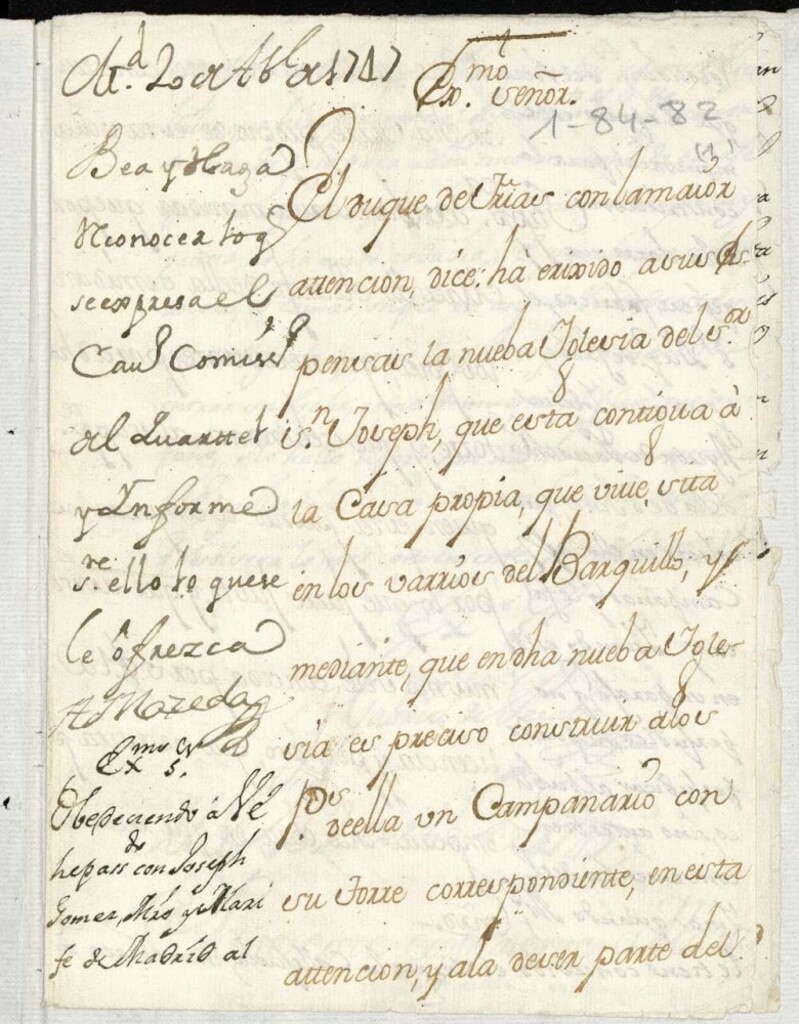 M.d 20 de Abl de 1747
Exmo Señor.
1-84-82
Bea y haga
Reconocer lo q
se expresa el
Cau.o Comiss.o
del Quarttel
y Ynforme
sre. ello lo que se
le ofrezca
A Mazeda
Exmo Sr
Obedeciendo â VE
he pasdo con Joseph
Gomez, Mro y Alari
fe de Madrid al
El Duque de Frias con la maior
attencion, dice: hà erixido a sus Ex
pensas la nueba Yglesia del Sor
Sn. Joseph, que esta contigua à
la Casa propia, que vive, sita
en los varrios del Barquillo, y
mediante, que en dha nueba Ygle
sia es preciso construir a los
pies de ella un Campanario con
su torre correspondiente, en esta
attencion, y a la de ser parte del